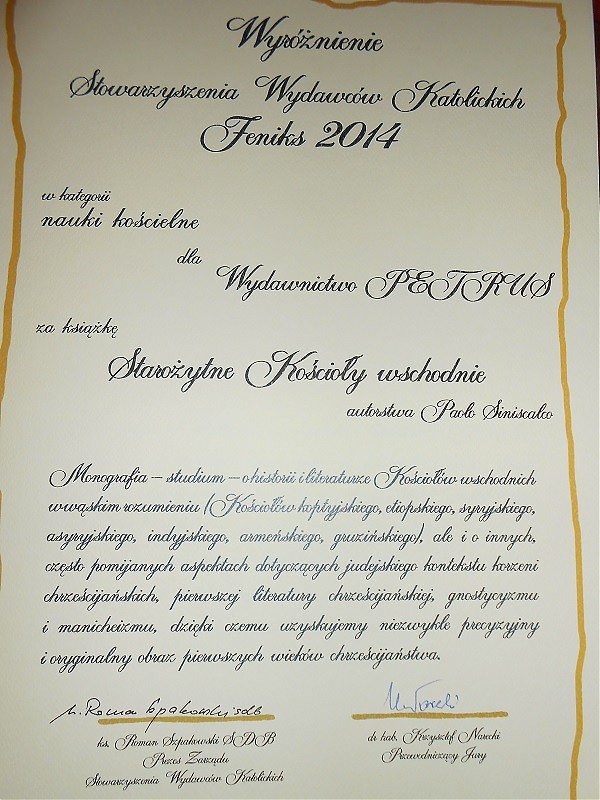 Wyróżnienie
Stowarzyszenia Wydawców Katolickich
Feniks 2014
w kategorii
nauki kościelne
dla
Wydawnictwo PETRUS
za książkę
Starożytne Kościoły wschodnie
autorstwa Paolo Siniscalco
Monografia – studium – o historii i literaturze Kościołów wschodnich
w wąskim rozumieniu (Kościołów koptyjskiego, etiopskiego, syryjskiego,
asyryjskiego, indyjskiego, armeńskiego, gruzińskiego), ale i o innych,
często pomijanych aspektach dotyczących judejskiego kontekstu korzeni
chrześcijańskich, pierwszej literatury chrześcijańskiej, gnostycyzmu
i manicheizmu, dzięki czemu uzyskujemy niezwykle precyzyjny
i oryginalny obraz pierwszych wieków chrześcijaństwa.
ks. Roman Szpakowski SDB
Prezes Zarządu
Stowarzyszenia Wydawców Katolickich
dr hab. Krzysztof Narecki
Przewodniczący Jury